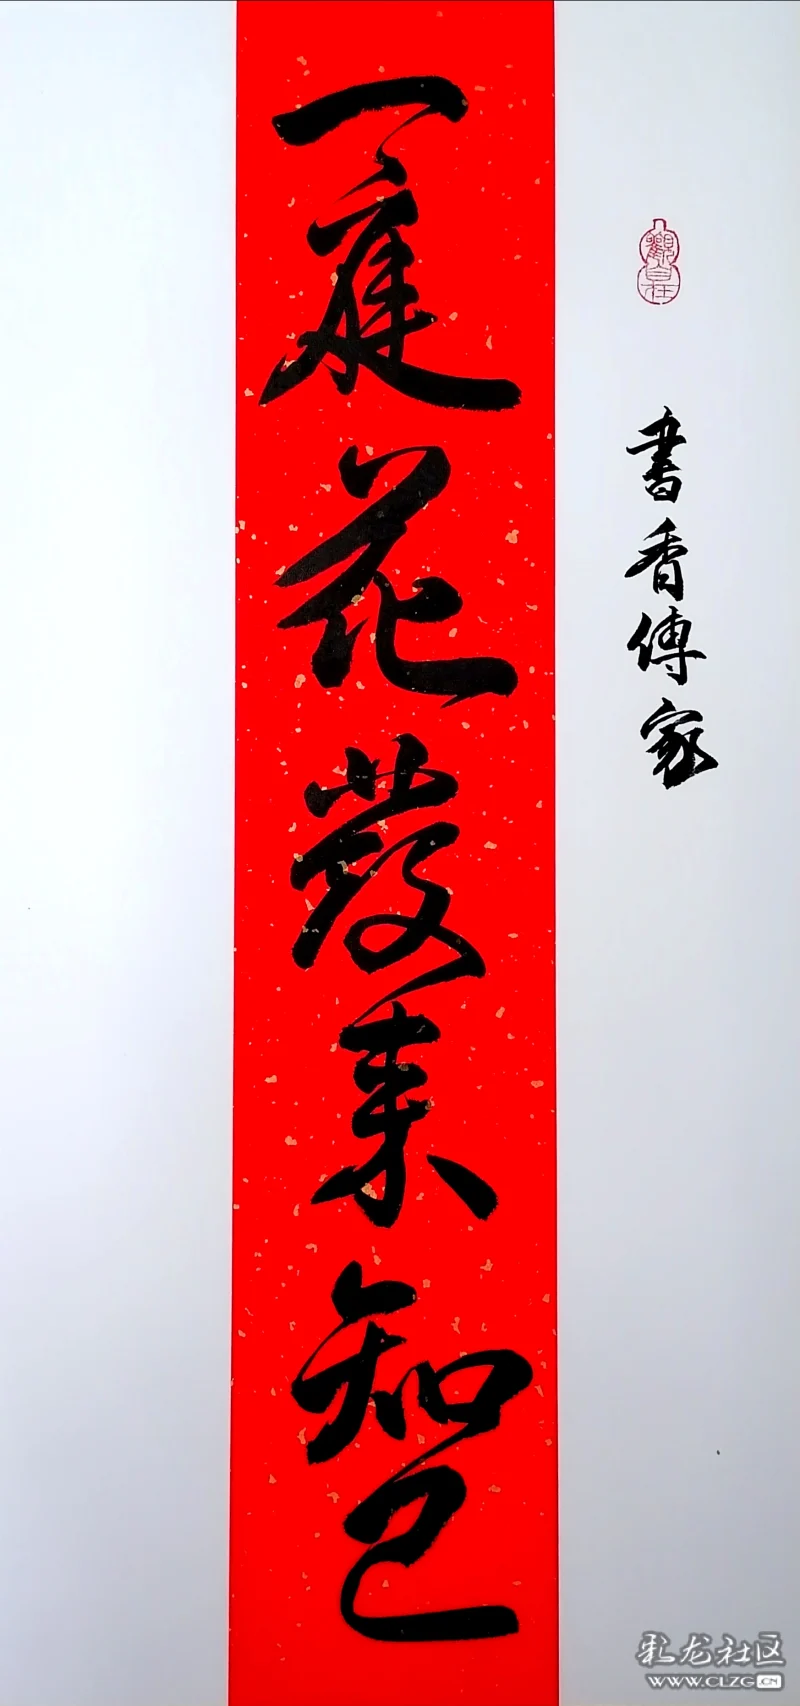 觀自在
書香傳家
一庭花發來知己
彩龙社区
WWW.CLZG.CN